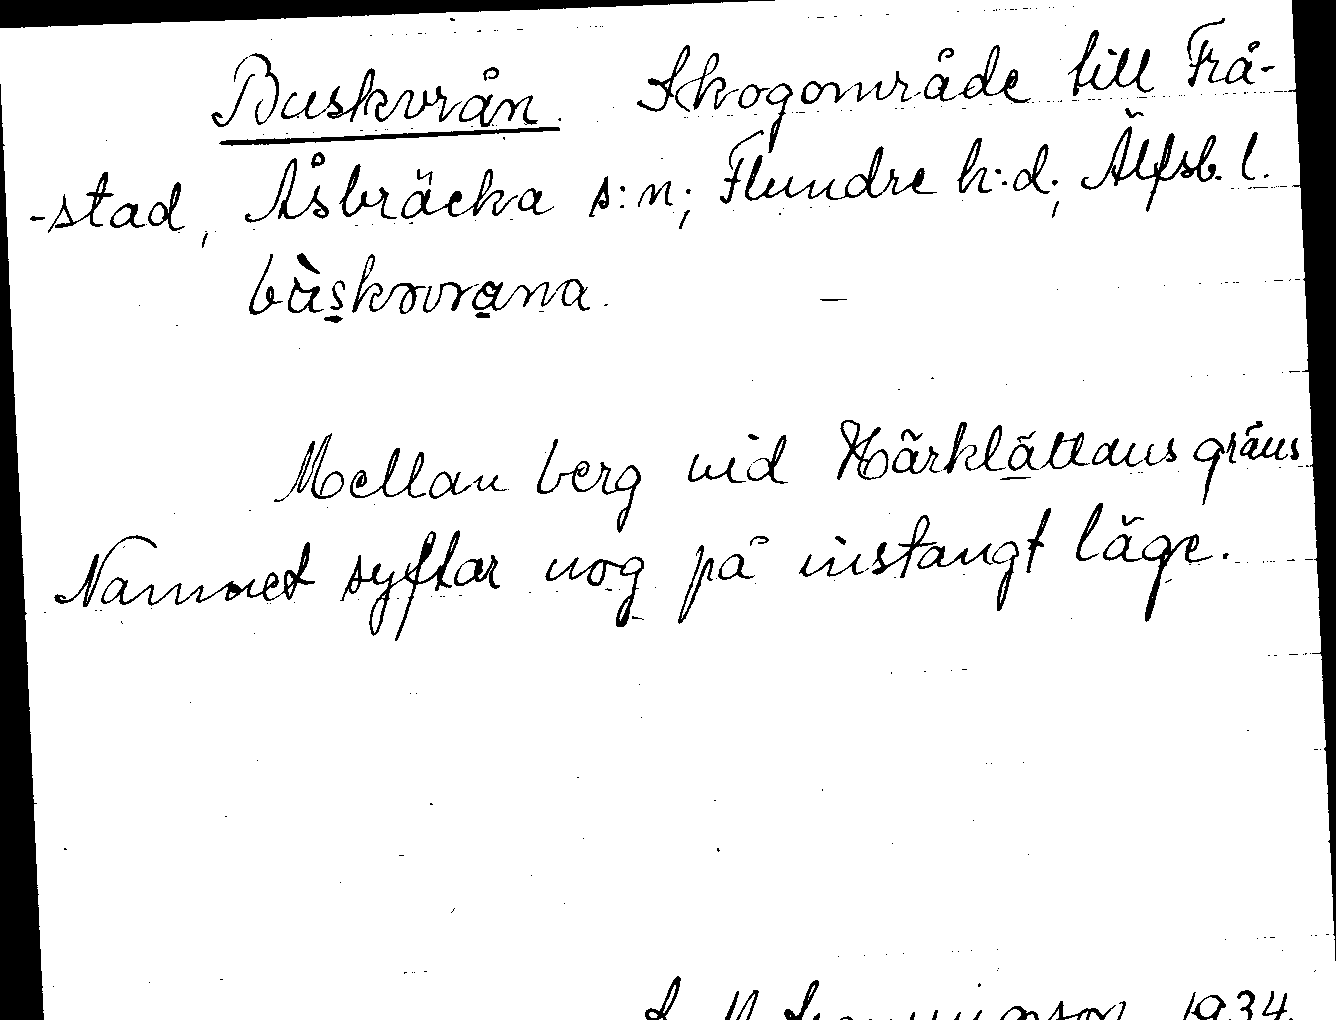 Buskvrån. Skogområde till Frå-
-stad, Åsbräcka s:n; Flundre h:d; Älfsb. l.
Mellan berg vid Härklättans gräns
Namnet syftar nog på instängt läge.
1934.